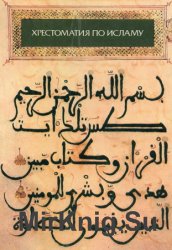 ХРЕСТОМАТИЯ ПО ИСЛАМУ
بسم الله الرحمن الرحيم
طس تلك آيت
القرآن وكتاب مبين
هدى وبشرى للمؤمنين
MirKnig.Su